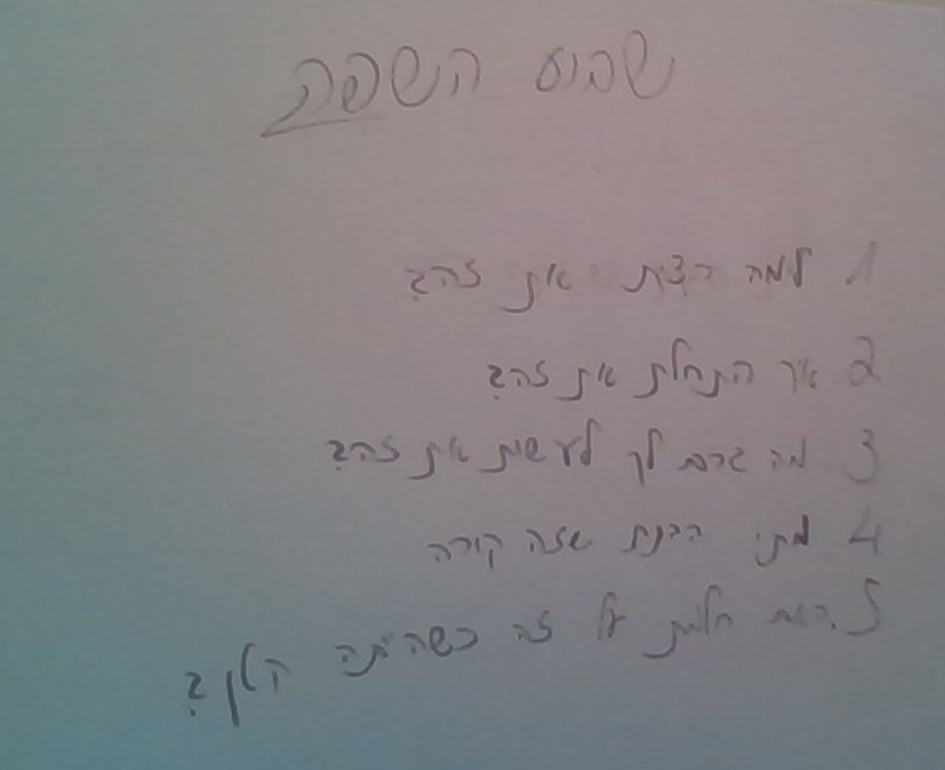 שבוע השפה
1. למה רצית את זה?
2 איך התחלת את זה?
3 מה גרם לך לעשות את זה?
4 מתי הבנת שזה קורה
5. האם חלמת על זה כשהיתה קטן?